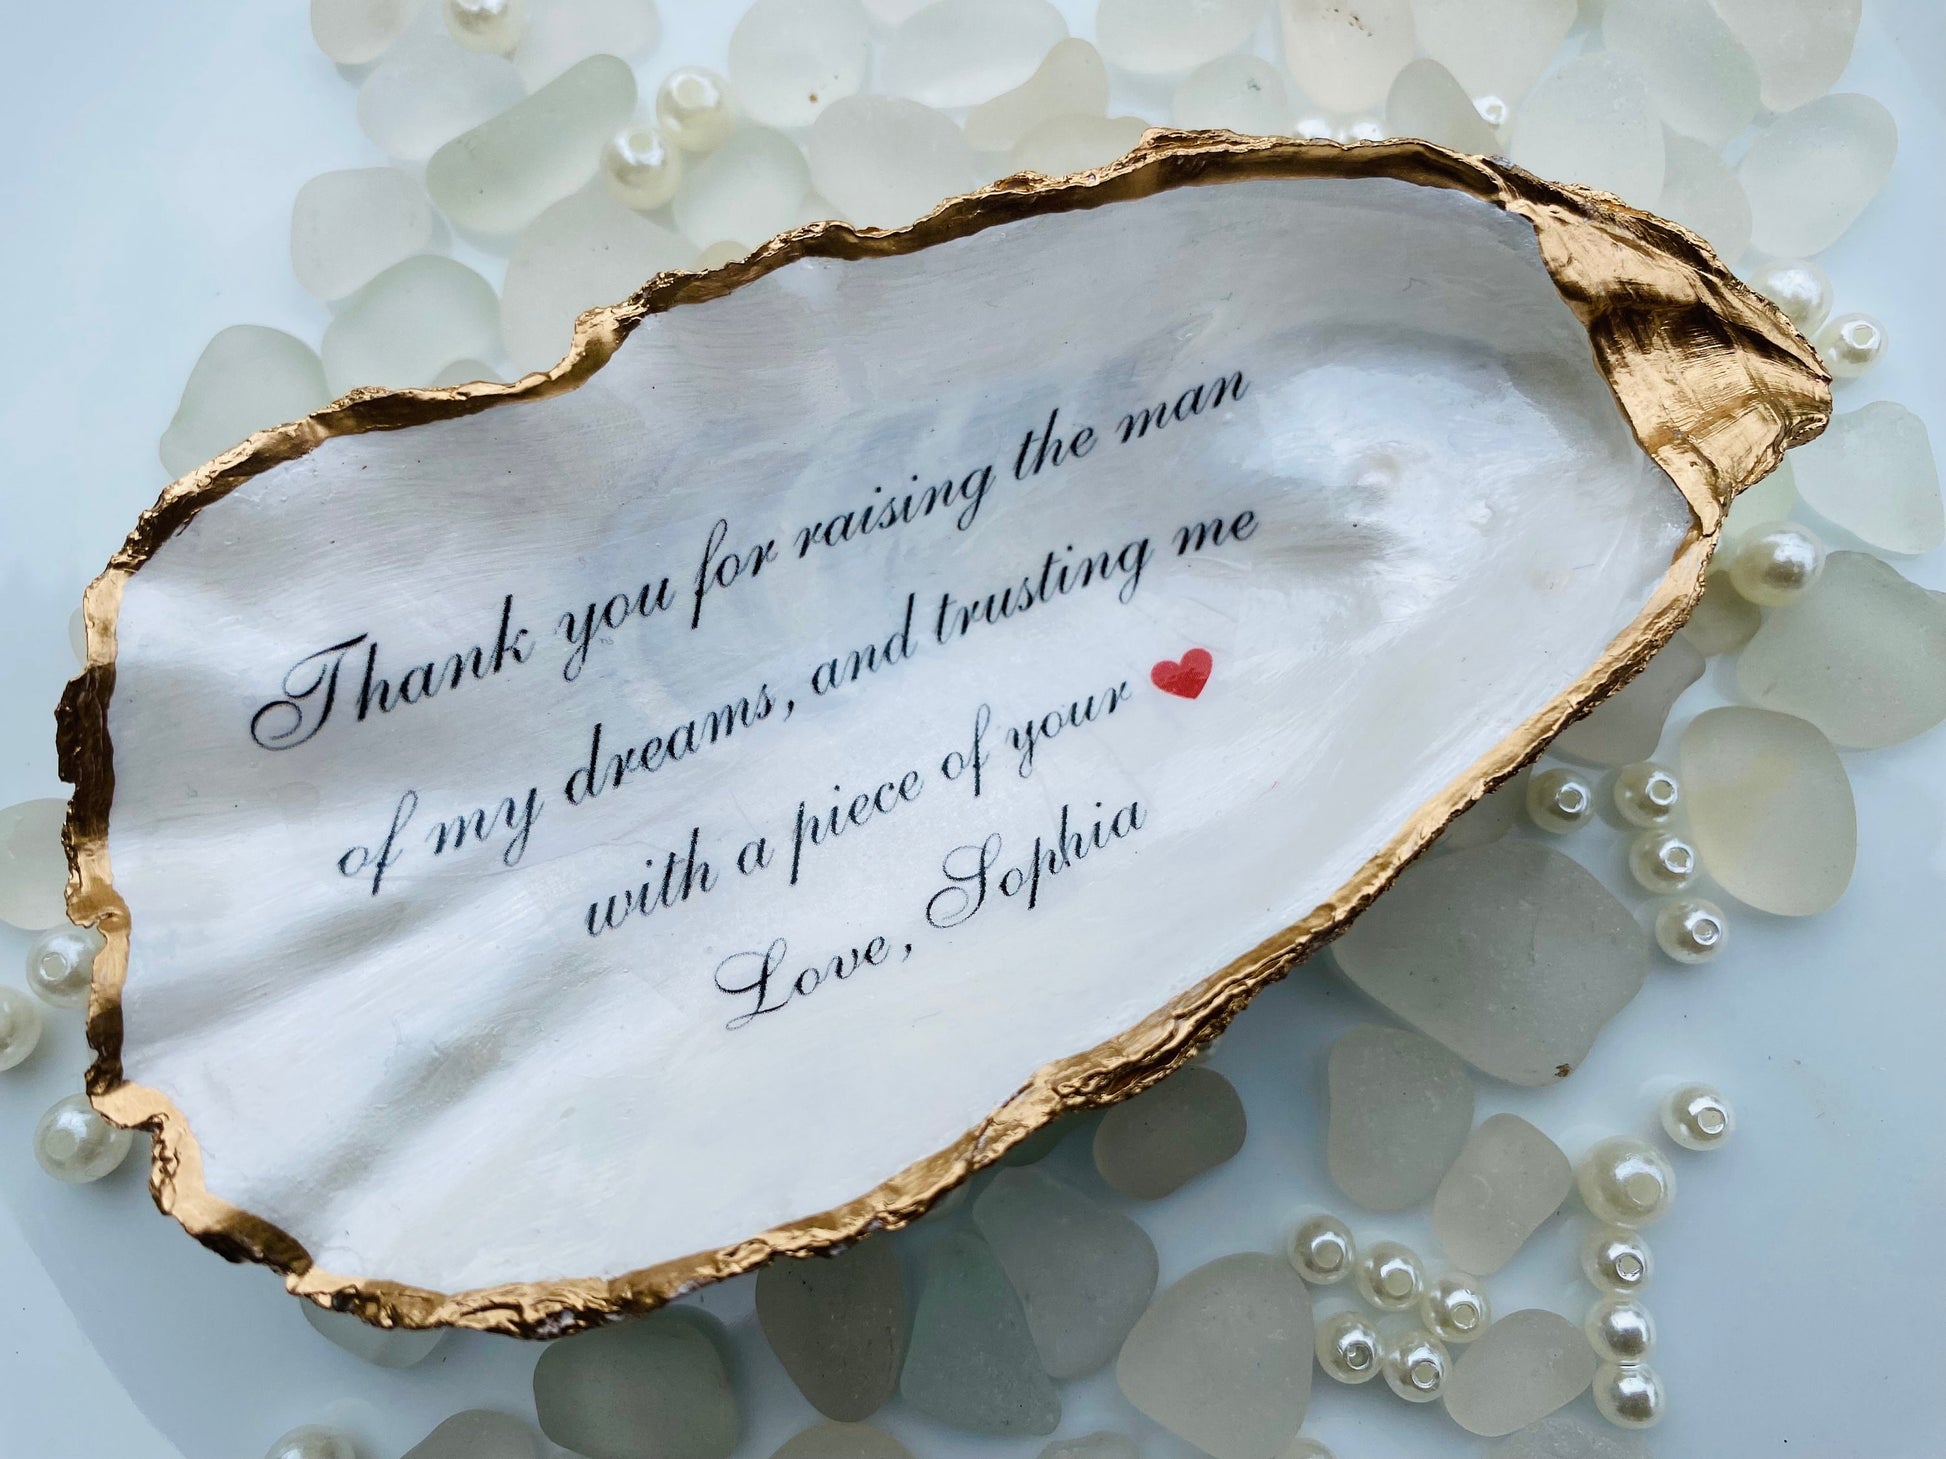 Thank you for raising the man
of my dreams, and trusting me
with a piece of your ❤
Love, Sophia